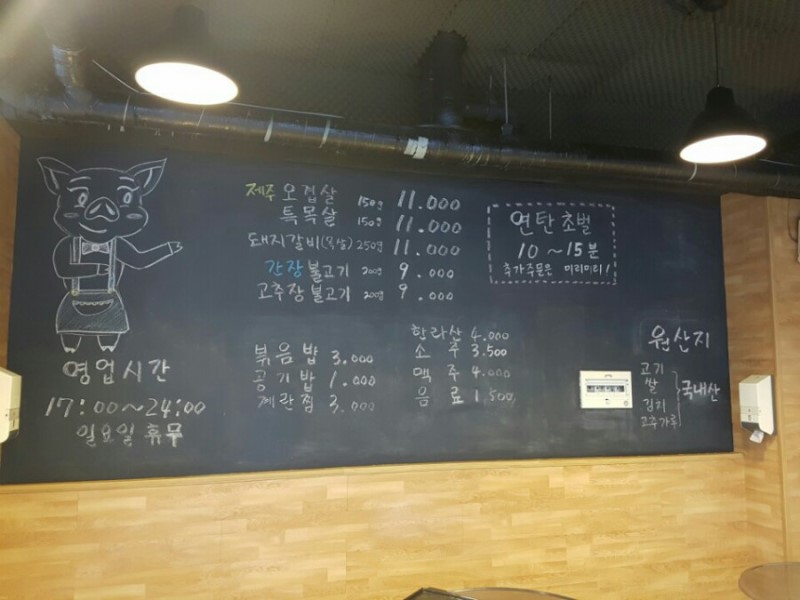 제주 오겹살 150g 11.000
특목살 150g 11.000
돼지갈비(목살) 250g 11.000
간장 불고기 200g 9.000
고추장 불고기 200g 9.000
연탄 초벌
10~15분
추가주문은 미리미리!
볶음밥 3.000
공기밥 1.000
계란찜 3.000
한라산 4.000
소주 3.500
맥주 4.000
음료 1.500
영업시간
17:00~24:00
일요일 휴무
원산지
고기
쌀
김치
고추가루
국내산